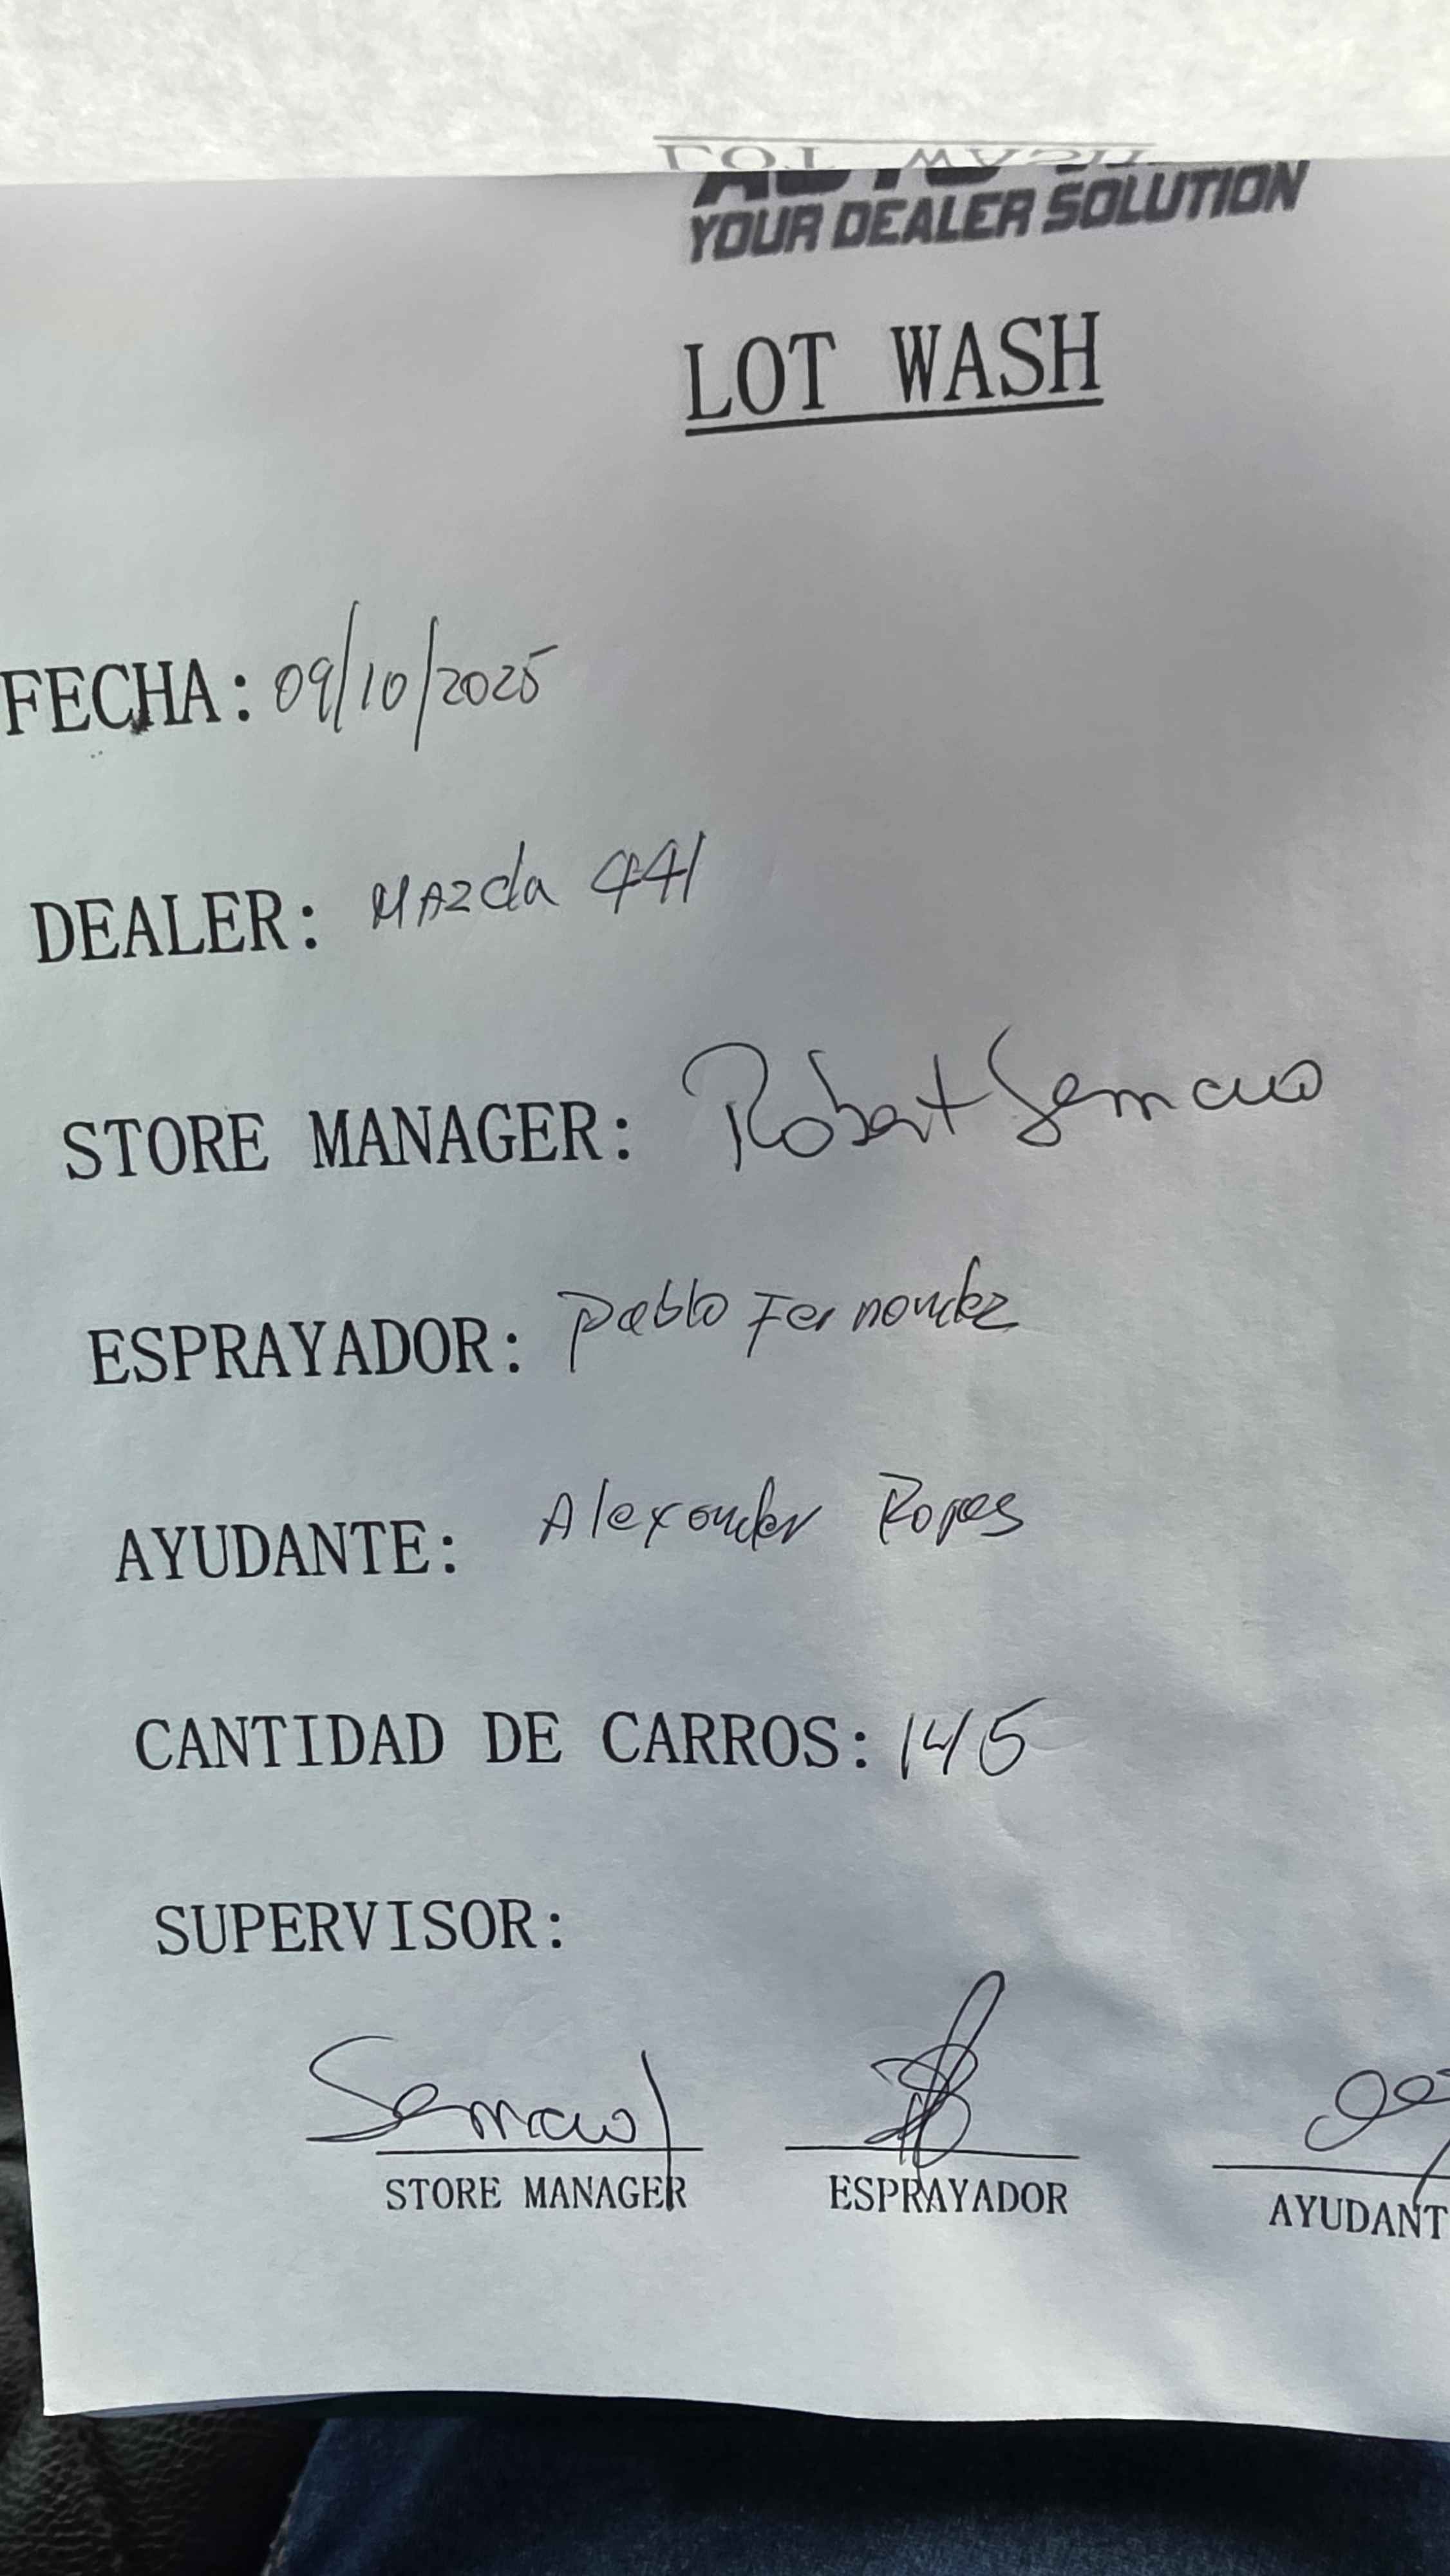 YOUR DEALER SOLUTION
LOT WASH
FECHA: 09/10/2025
DEALER: Mazda 441
STORE MANAGER: Robert
ESPRAYADOR: Pablo Fernandez
AYUDANTE: Alexander
CANTIDAD DE CARROS: 145
SUPERVISOR:
STORE MANAGER ESPRAYADOR AYUDANT